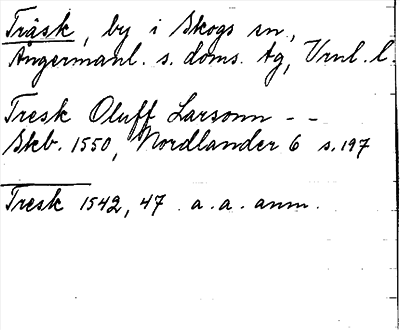 Träsk, by i Skogs sn,
Ångermanl. s. doms. tg, Vrnl. l.
Tresk Oluff Larsonn - -
Skb. 1550, Nordlander 6 s. 197
Tresk 1542, 47 a. a. anm.